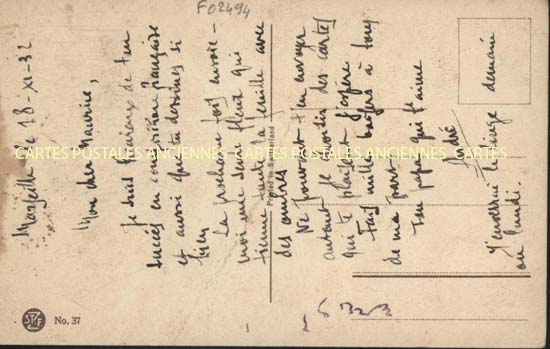 F02494
Marseille le 18-XI-32
Mon cher Maurice,
Je suis heureux de ton
succès en composition française
et aussi que tu dessines si
bien.
La prochaine fois envoie-
moi une seule fleur qui
tienne toute la feuille avec
des ombres.
Ne pouvant t'en envoyer
autant je choisis des cartes
qui te plairont j'espère
Fais mille baisers à tous
de ma part
Ton papa qui t'aime
André
J'enverrai le linge demain
ou lundi.
Printed in Switzerland
CARTES POSTALES ANCIENNES CARTES POSTALES ANCIENNES CARTES POSTALES ANCIENNES
No. 37